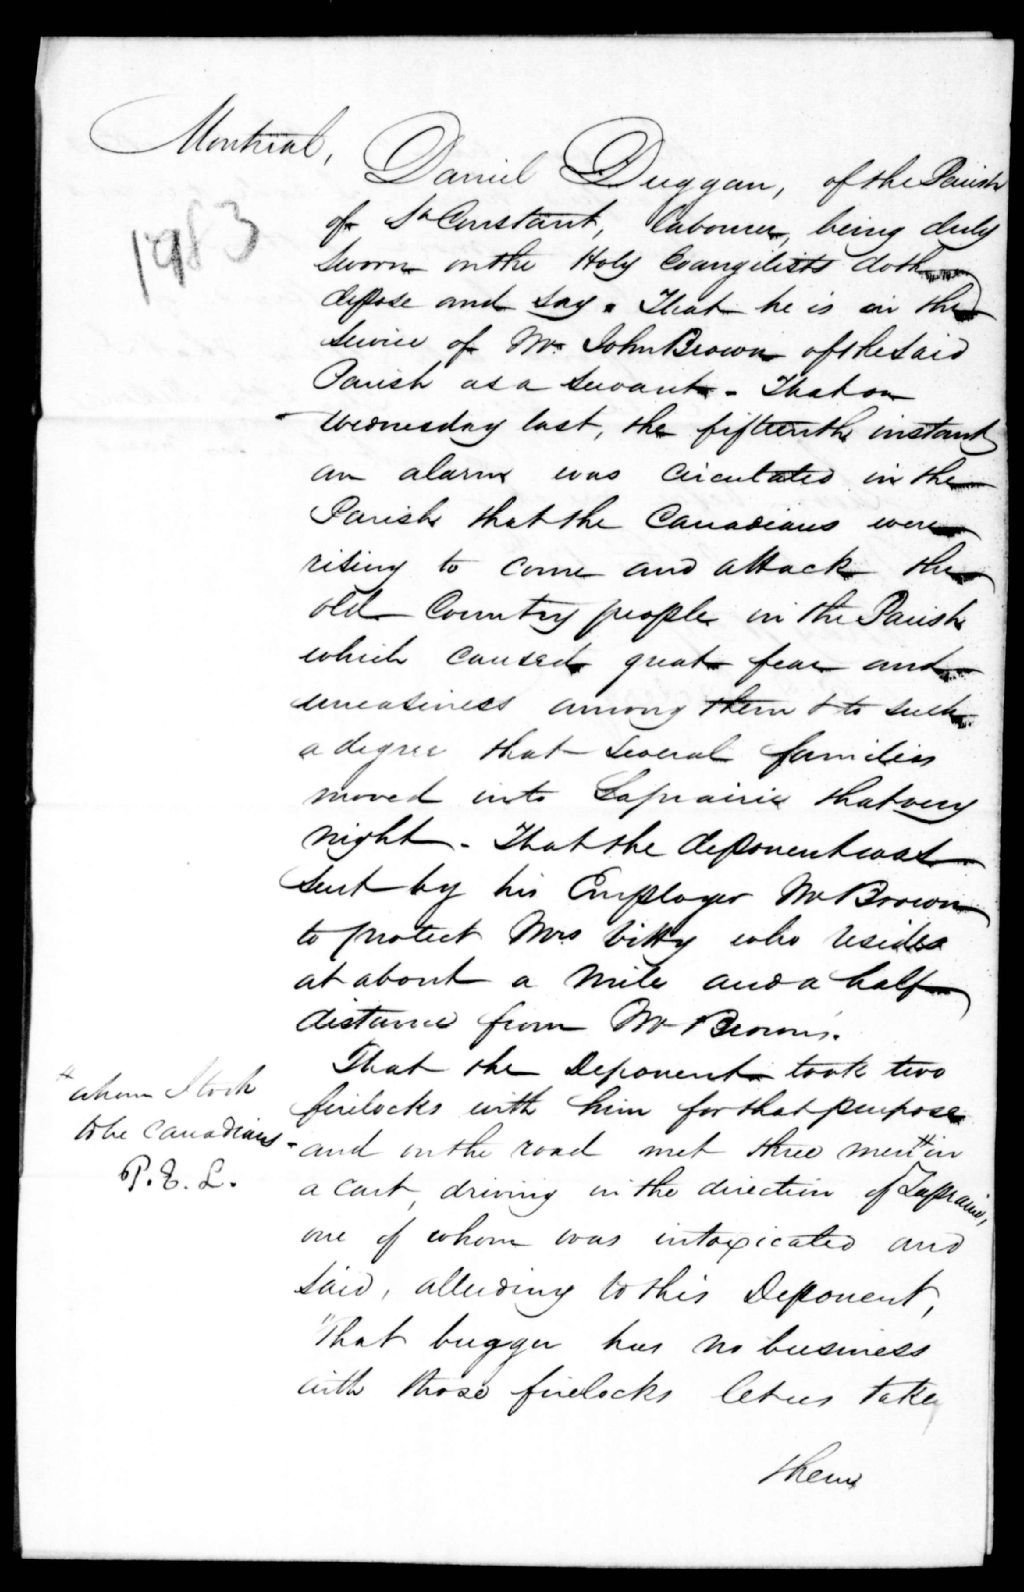 Montreal,
1983
Daniel Duggan, of the Parish
of St Constant, labourer, being duly
sworn on the Holy Evangelists doth
depose and say. That he is in the
service of Mr. John Brown of the said
Parish as a servant - That on
Wednesday last, the fifteenth instant
an alarm was circulated in the
Parish that the Canadians were
rising to come and attack the
old Country people in the Parish
which caused great fear and
uneasiness among them & to such
a degree that several families
moved into Laprairie that very
night - That the deponent was
sent by his Employer Mr Brown
to protect Mrs who resides
at about a mile and a half
distance from Mr Brown's.
That the Deponent took two
firelocks with him for that purpose
and on the road met three men # in
# whom I took
to be Canadians -
P. E. L.
a cart, driving in the direction of Laprairie,
one of whom was intoxicated and
said, alluding to this Deponent,
"That bugger has no business
with those firelocks let us take
them